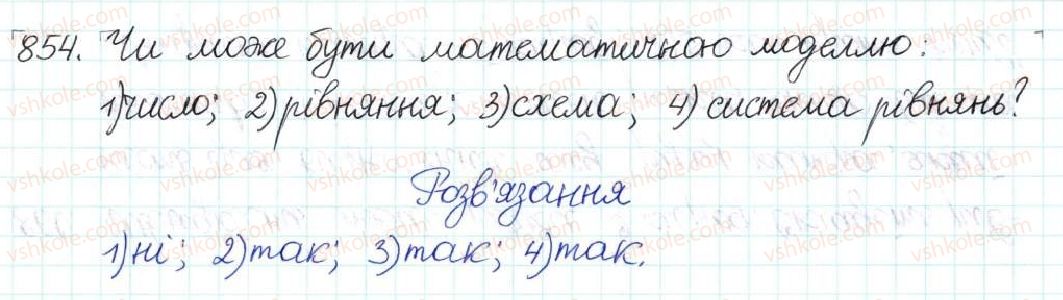 854. Чи може бути математичною моделлю:
1) число; 2) рівняння; 3) схема; 4) система рівнянь?
Розв'язання
1) ні; 2) так; 3) так; 4) так.